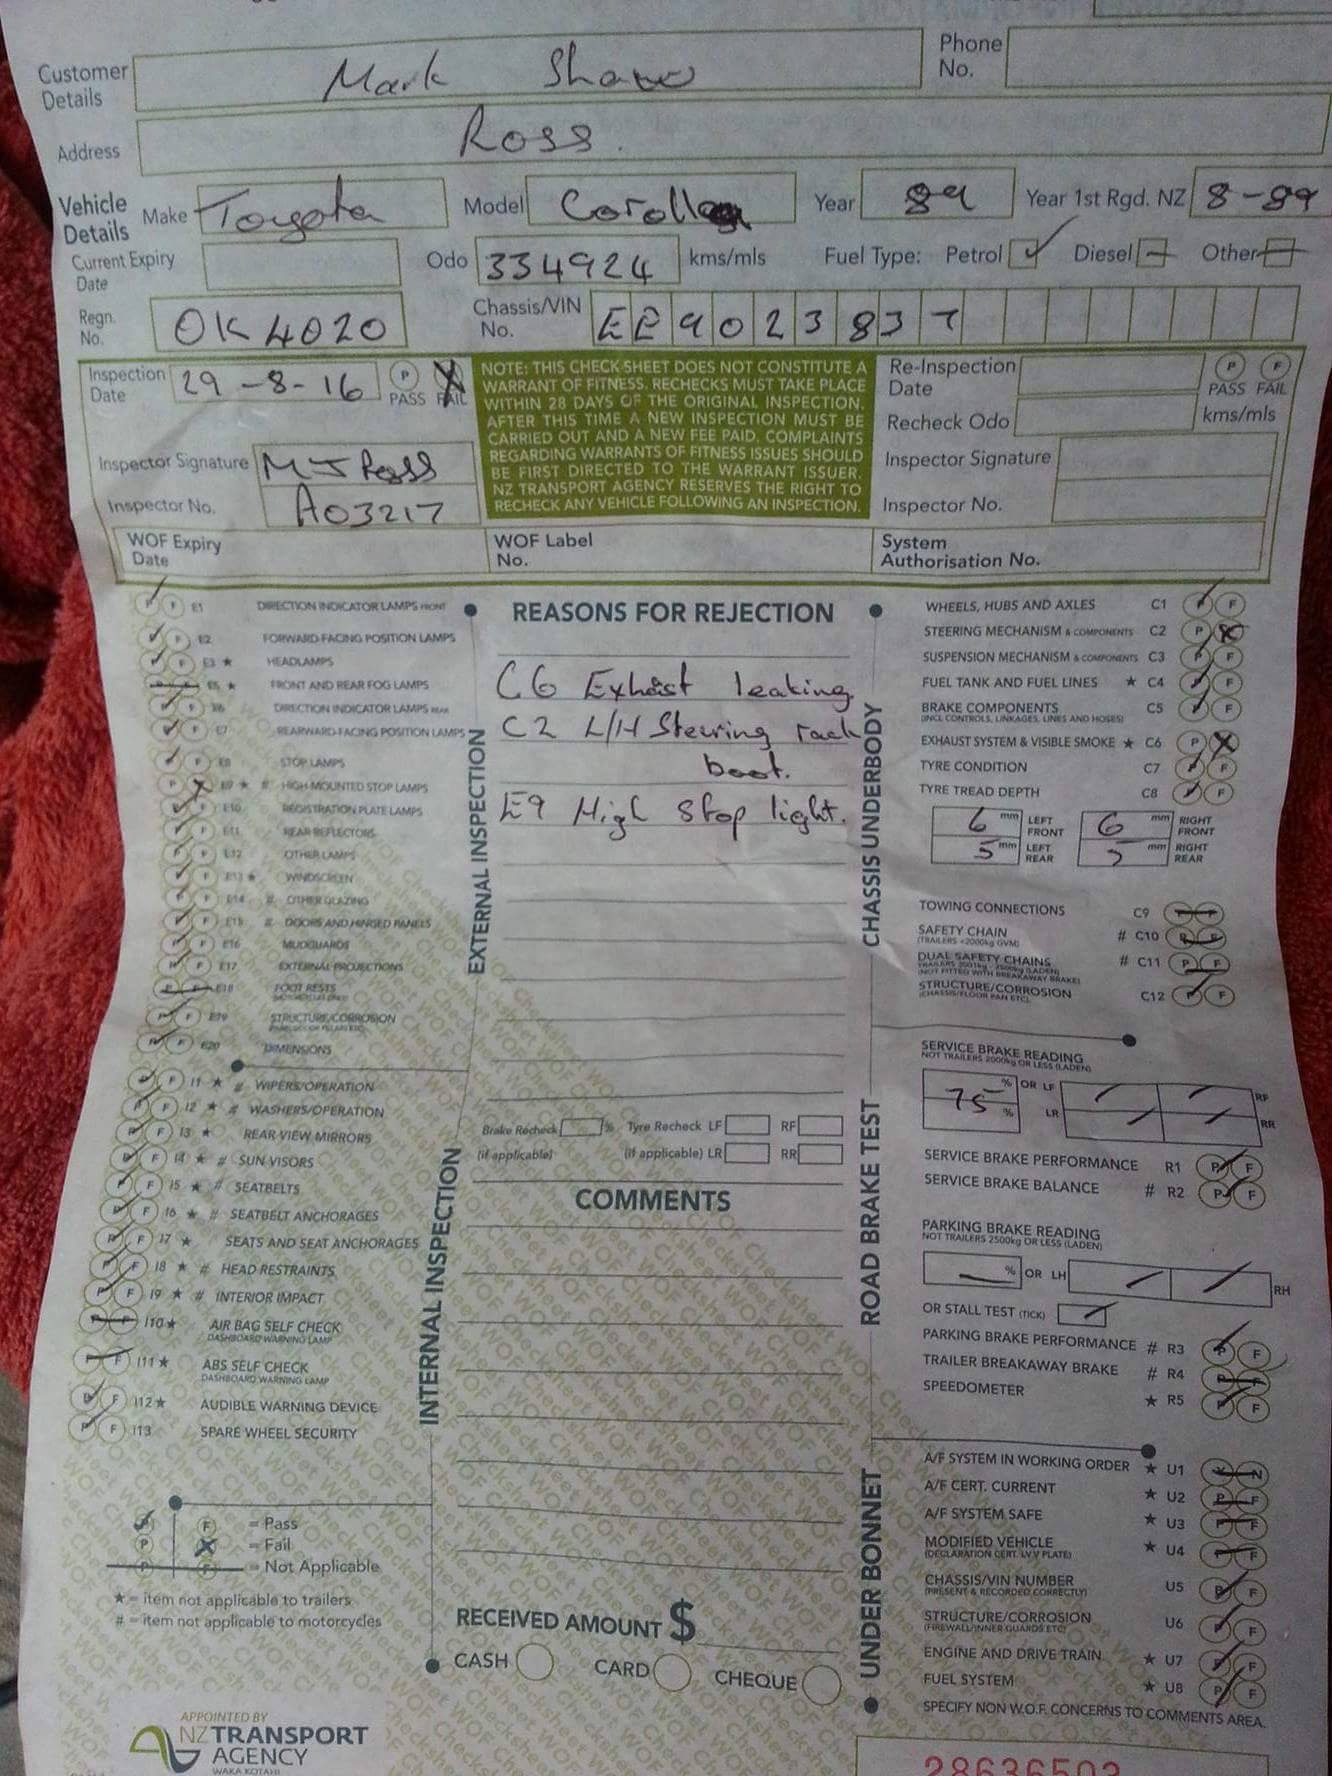 Customer Details Mark Shaw Phone No.
Address Ross.
Vehicle Details Make Toyota Model Corolla Year 89 Year 1st Rgd. NZ 8-89
Current Expiry Date Odo 334924 kms/mls Fuel Type: Petrol Diesel Other
Regn. No. OK4020 Chassis/VIN No. EE9023837
Inspection Date 29-8-16 P PASS FAIL
NOTE: THIS CHECK SHEET DOES NOT CONSTITUTE A
WARRANT OF FITNESS. RECHECKS MUST TAKE PLACE
WITHIN 28 DAYS OF THE ORIGINAL INSPECTION.
AFTER THIS TIME A NEW INSPECTION MUST BE
CARRIED OUT AND A NEW FEE PAID. COMPLAINTS
REGARDING WARRANTS OF FITNESS ISSUES SHOULD
BE FIRST DIRECTED TO THE WARRANT ISSUER.
NZ TRANSPORT AGENCY RESERVES THE RIGHT TO
RECHECK ANY VEHICLE FOLLOWING AN INSPECTION.
Re-Inspection Date P PASS F FAIL
Recheck Odo kms/mls
Inspector Signature MJ Ross
Inspector No. A03217
Inspector Signature
Inspector No.
WOF Expiry Date
WOF Label No.
System Authorisation No.
EXTERNAL INSPECTION
P F E1 DIRECTION INDICATOR LAMPS FRONT
P F E2 FORWARD-FACING POSITION LAMPS
P F E3 ★ HEADLAMPS
P F E5 ★ FRONT AND REAR FOG LAMPS
P F E6 DIRECTION INDICATOR LAMPS REAR
P F E7 REARWARD-FACING POSITION LAMPS
P F E8 STOP LAMPS
P F E9 ★ # HIGH-MOUNTED STOP LAMPS
P F E10 REGISTRATION PLATE LAMPS
P F E11 REAR REFLECTORS
P F E12 OTHER LAMPS
P F E13 ★ WINDSCREEN
P F E14 # OTHER GLAZING
P F E15 # DOORS AND HINGED PANELS
P F E16 MUDGUARDS
P F E17 EXTERNAL PROJECTIONS
P F E18 FOOT RESTS
(MOTORCYCLES ONLY)
P F E19 STRUCTURE/CORROSION
P F E20 DIMENSIONS
INTERNAL INSPECTION
P F I1 ★ # WIPERS/OPERATION
P F I2 ★ # WASHERS/OPERATION
P F I3 ★ REAR VIEW MIRRORS
P F I4 ★ # SUN VISORS
P F I5 ★ # SEATBELTS
P F I6 ★ # SEATBELT ANCHORAGES
P F I7 ★ SEATS AND SEAT ANCHORAGES
P F I8 ★ # HEAD RESTRAINTS
P F I9 ★ # INTERIOR IMPACT
P F I10 ★ AIR BAG SELF CHECK
DASHBOARD WARNING LAMP
P F I11 ★ ABS SELF CHECK
DASHBOARD WARNING LAMP
P F I12 ★ AUDIBLE WARNING DEVICE
P F I13 SPARE WHEEL SECURITY
P F = Pass
P F = Fail
P F = Not Applicable
★ = item not applicable to trailers
# = item not applicable to motorcycles
APPOINTED BY
NZ TRANSPORT
AGENCY
WAKA KOTAHI
REASONS FOR REJECTION
C6 Exhast leaking
C2 L/H Steering rack
boot.
E9 High Stop light.
Brake Recheck % Tyre Recheck LF RF
(if applicable) (if applicable) LR RR
COMMENTS
RECEIVED AMOUNT $
CASH CARD CHEQUE
CHASSIS UNDERBODY
WHEELS, HUBS AND AXLES C1 P F
STEERING MECHANISM & COMPONENTS C2 P F
SUSPENSION MECHANISM & COMPONENTS C3 P F
FUEL TANK AND FUEL LINES ★ C4 P F
BRAKE COMPONENTS C5 P F
(INCL CONTROLS, LINKAGES, LINES AND HOSES)
EXHAUST SYSTEM & VISIBLE SMOKE ★ C6 P F
TYRE CONDITION C7 P F
TYRE TREAD DEPTH C8 P F
6 mm LEFT FRONT 6 mm RIGHT FRONT
5 mm LEFT REAR 5 mm RIGHT REAR
TOWING CONNECTIONS C9 P F
SAFETY CHAIN # C10 P F
(TRAILERS <2000kg GVM)
DUAL SAFETY CHAINS # C11 P F
TRAILERS 2001kg - 2500kg (LADEN)
(NOT FITTED WITH BREAKAWAY BRAKE)
STRUCTURE/CORROSION C12 P F
(CHASSIS/FLOOR PAN ETC)
ROAD BRAKE TEST
SERVICE BRAKE READING
NOT TRAILERS 2000kg OR LESS (LADEN)
75 % OR LF RF
% LR RR
SERVICE BRAKE PERFORMANCE R1 P F
SERVICE BRAKE BALANCE # R2 P F
PARKING BRAKE READING
NOT TRAILERS 2500kg OR LESS (LADEN)
% OR LH RH
OR STALL TEST (TICK)
PARKING BRAKE PERFORMANCE # R3 P F
TRAILER BREAKAWAY BRAKE # R4 P F
SPEEDOMETER ★ R5 P F
UNDER BONNET
A/F SYSTEM IN WORKING ORDER ★ U1 Y N
A/F CERT. CURRENT ★ U2 P F
A/F SYSTEM SAFE ★ U3 P F
MODIFIED VEHICLE ★ U4 P F
(DECLARATION CERT. LVV PLATE)
CHASSIS/VIN NUMBER U5 P F
(PRESENT & RECORDED CORRECTLY)
STRUCTURE/CORROSION U6 P F
(FIREWALL/INNER GUARDS ETC)
ENGINE AND DRIVE TRAIN ★ U7 P F
FUEL SYSTEM ★ U8 P F
SPECIFY NON W.O.F. CONCERNS TO COMMENTS AREA.
28636503